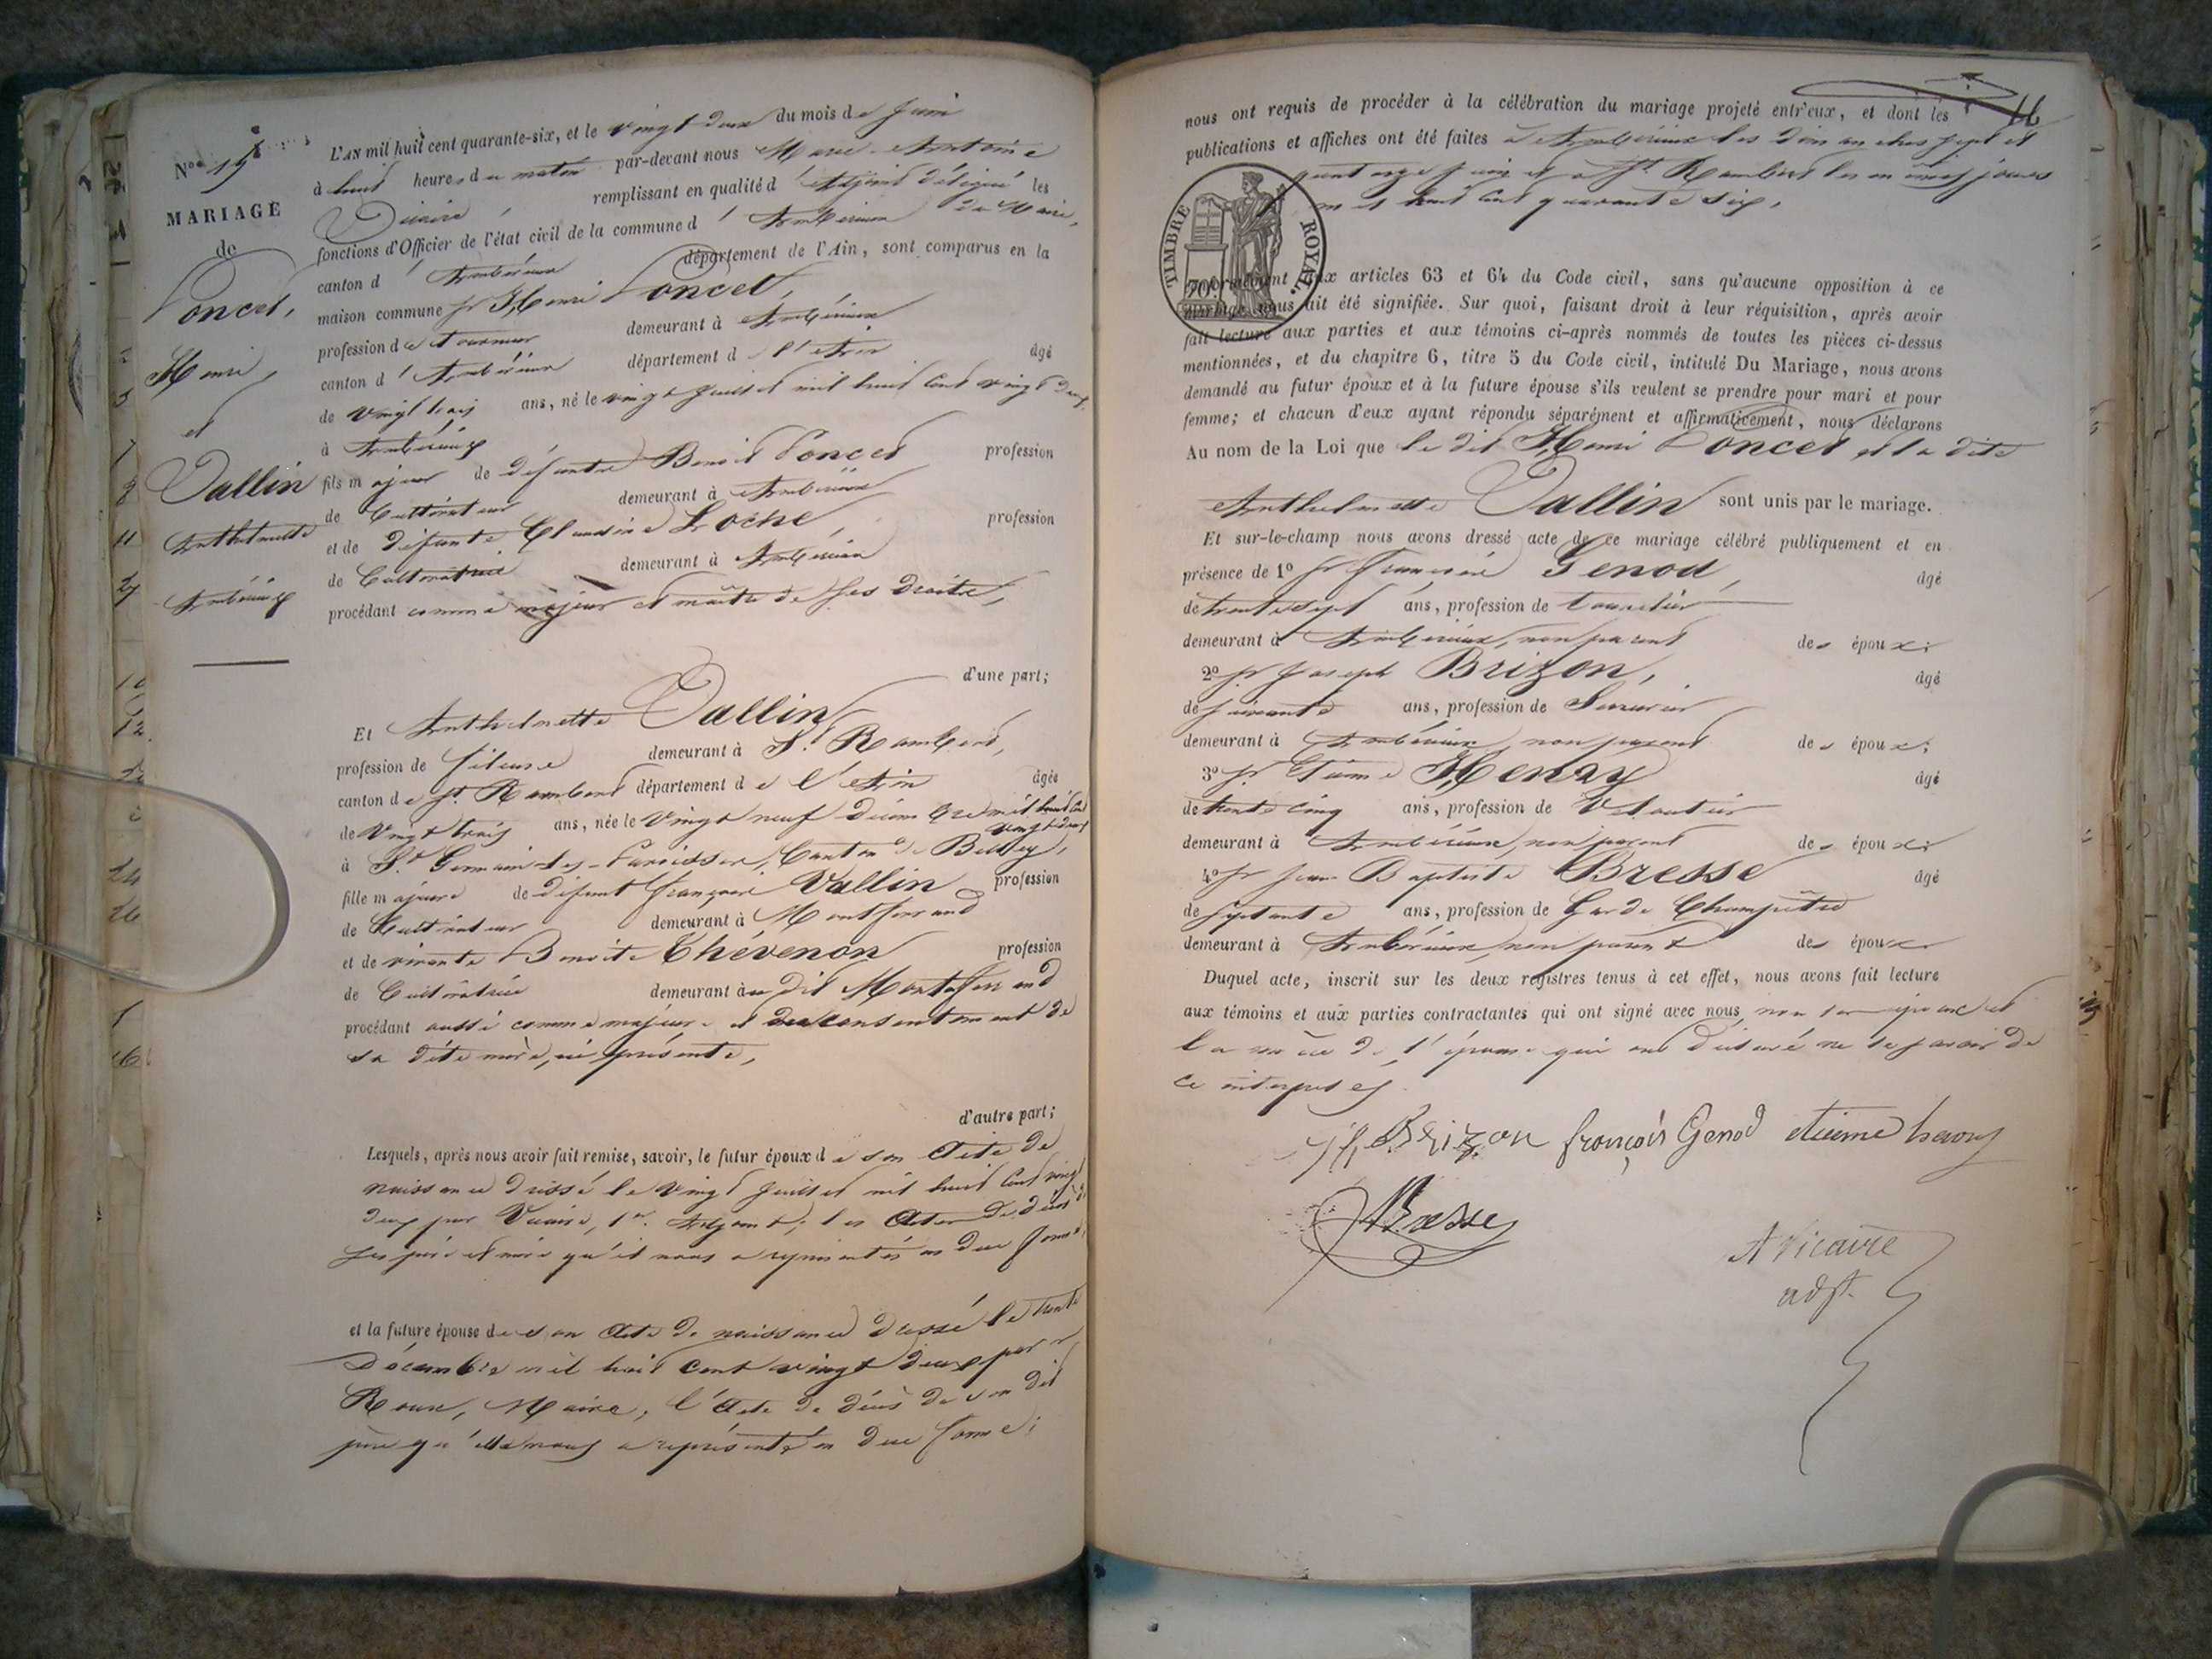 N.º 15
MARIAGE
de
Poncet,
Henri,
et
Vallin
Anthelmette
Ambérieux
L'AN mil huit cent quarante-six, et le vingt deux du mois de Juin
à huit heures du matin par-devant nous Marie Antoine
Vicaire remplissant en qualité d'Adjoint délégué les
fonctions d'Officier de l'état civil de la commune d'Ambérieux du Maire,
canton d'Ambérieux département de l'Ain, sont comparus en la
maison commune Sr Henri Poncet,
profession de tourneur demeurant à Ambérieux
canton d'Ambérieux département de l'Ain âgé
de vingt trois ans, né le vingt Juillet mil huit cent vingt deux
à Ambérieux
fils majeur de défunts Benoit Poncet profession
de Cultivateur demeurant à Ambérieux
et de défunte Claudine Loche, profession
de Cultivatrice demeurant à Ambérieux
procédant comme majeur et maître de ses droits,
d'une part;
Et Anthelmette Vallin
profession de fileuse demeurant à St. Rambert,
canton de St. Rambert département de l'Ain âgée
de Vingt trois ans, née le Vingt neuf Décembre mil huit cent
vingt deux
à St Germain-les-Paroisses, Canton de Belley,
fille majeure de défunt françois Vallin profession
de Cultivateur demeurant à Montferrand
et de vivante Benoite Chévenon profession
de Cultivatrice demeurant au dit Montferrand
procédant aussi comme majeure et du consentement de
sa dite mère, ici présente,
d'autre part;
Lesquels, après nous avoir fait remise, savoir, le futur époux de son acte de
naissance dressé le vingt Juillet mil huit cent vingt
deux par Vicaire, 1er. Adjoint; les actes de décès de
ses père et mère qu'il nous a représentés en due forme,
et la future épouse de son acte de naissance dressé le trente
Décembre mil huit cent vingt deux par Mr
Roux, Maire, l'acte de décès de son dit
père qu'elle nous a représenté en due forme;
nous ont requis de procéder à la célébration du mariage projeté entr'eux, et dont les
publications et affiches ont été faites à Ambérieux les dimanches sept et
quatorze Juin et à St. Rambert les mêmes jours
mil huit cent quarante six,
TIMBRE ROYAL.
conformément aux articles 63 et 64 du Code civil, sans qu'aucune opposition à ce
mariage nous ait été signifiée. Sur quoi, faisant droit à leur réquisition, après avoir
fait lecture aux parties et aux témoins ci-après nommés de toutes les pièces ci-dessus
mentionnées, et du chapitre 6, titre 5 du Code civil, intitulé Du Mariage, nous avons
demandé au futur époux et à la future épouse s'ils veulent se prendre pour mari et pour
femme; et chacun d'eux ayant répondu séparément et affirmativement, nous déclarons
Au nom de la Loi que le dit Henri Poncet et la dite
Anthelmette Vallin sont unis par le mariage.
Et sur-le-champ nous avons dressé acte de ce mariage célébré publiquement et en
présence de 1º Sr François Genod, âgé
de trente sept ans, profession de
demeurant à Ambérieux, non parent des époux;
2º Sr Joseph Brizon, âgé
de soixante ans, profession de Serrurier
demeurant à Ambérieux, non parent des époux;
3º Sr Etienne Henry âgé
de trente cinq ans, profession de
demeurant à Ambérieux, non parent des époux;
4º Sr Jean Baptiste Bresse âgé
de septante ans, profession de Garde Champêtre
demeurant à Ambérieux, non parent des époux
Duquel acte, inscrit sur les deux registres tenus à cet effet, nous avons fait lecture
aux témoins et aux parties contractantes qui ont signé avec nous, non
la mère de l'épouse qui ont déclaré ne le savoir de
ce interpellés.
Brizon françois Genod etienne henry
Bresse
A Vicaire
adjt.